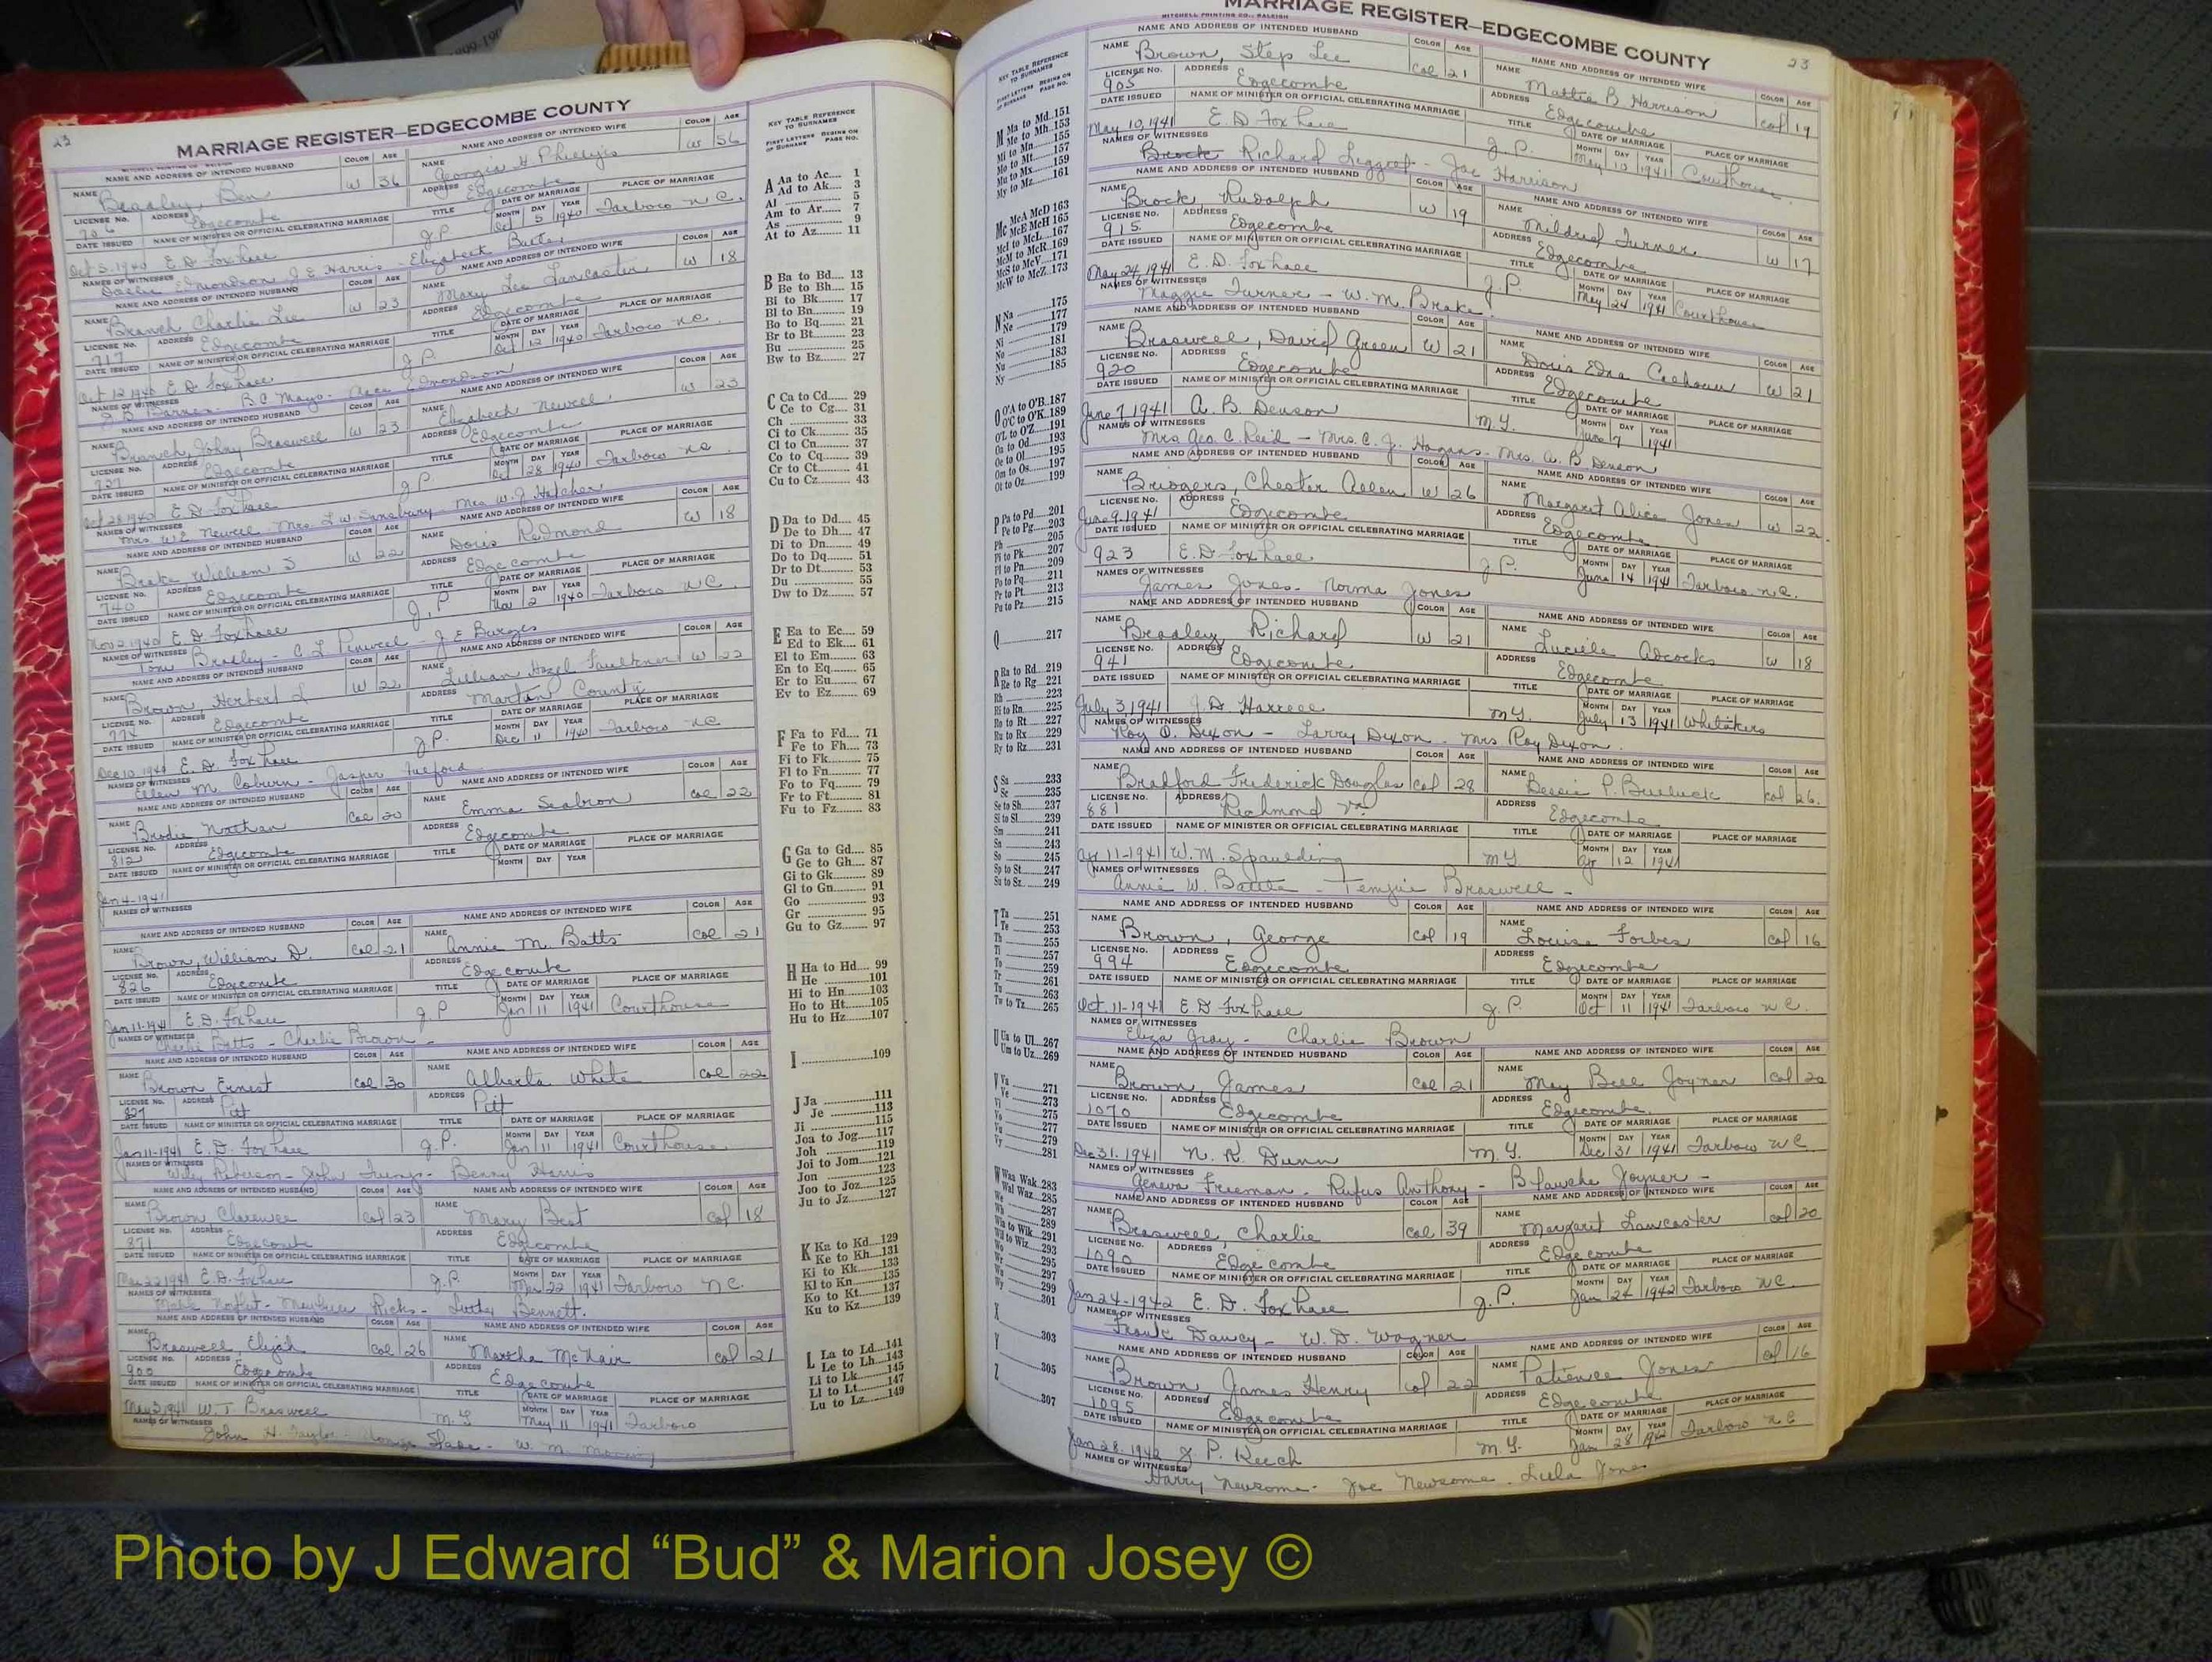 23
MARRIAGE REGISTER—EDGECOMBE COUNTY
NAME AND ADDRESS OF INTENDED HUSBAND COLOR AGE NAME AND ADDRESS OF INTENDED WIFE COLOR AGE
NAME Bradley, Ben W 36 NAME Georgia H. Phillips W 56
LICENSE NO. 706 ADDRESS Edgecombe ADDRESS Edgecombe
DATE ISSUED NAME OF MINISTER OR OFFICIAL CELEBRATING MARRIAGE TITLE DATE OF MARRIAGE MONTH DAY YEAR PLACE OF MARRIAGE
Oct 5, 1940 E. D. Foxhall J. P. Oct 5 1940 Tarboro N.C.
NAMES OF WITNESSES Edmondson J. E. Harris - Elizabeth
NAME Branch Charlie Lee W 23 NAME Mary Lee Lancaster W 18
LICENSE NO. 717 ADDRESS Edgecombe ADDRESS Edgecombe
Oct 12 1940 E. D. Foxhall J. P. Oct 12 1940 Tarboro N.C.
NAMES OF WITNESSES J. D. Barnes - B. C. Mayo - Edmondson
NAME Branch, Johny Braswell W 23 NAME Elizabeth Newell W 23
LICENSE NO. 737 ADDRESS Edgecombe ADDRESS Edgecombe
Oct 28 1940 E. D. Foxhall J. P. Oct 28 1940 Tarboro N.C.
NAMES OF WITNESSES Mrs W. E. Newell - Mrs. L. W. - Mrs W. J. Hatcher
NAME Brake William S W 22 NAME Doris Redmond W 18
LICENSE NO. 740 ADDRESS Edgecombe ADDRESS Edgecombe
Nov 2 1940 E. D. Foxhall J. P. Nov 2 1940 Tarboro N.C.
NAMES OF WITNESSES Tom Bradley - C. L. - J. E. Burges
NAME Brown, Herbert L W 22 NAME Lillian Hazel Faulkner W 22
LICENSE NO. 774 ADDRESS Edgecombe ADDRESS Martin County
Dec 10 1940 E. D. Foxhall J. P. Dec 11 1940 Tarboro N.C.
NAMES OF WITNESSES Ellen M. Coburn - Jasper
NAME Brodie Nathan Col 20 NAME Emma Seabron Col 22
LICENSE NO. 812 ADDRESS Edgecombe ADDRESS Edgecombe
Jan 4-1941
NAMES OF WITNESSES
NAME Brown, William D. Col 21 NAME Annie M. Batts Col 21
LICENSE NO. 826 ADDRESS Edgecombe ADDRESS Edgecombe
Jan 11-1941 E. D. Foxhall J. P. Jan 11 1941 Courthouse
NAMES OF WITNESSES Charlie Batts - Charlie Brown -
NAME Brown Ernest Col 30 NAME Alberta White Col 22
LICENSE NO. 827 ADDRESS Pitt ADDRESS Pitt
Jan 11-1941 E. D. Foxhall J. P. Jan 11 1941 Courthouse
NAMES OF WITNESSES Wiley Roberson - John - Benny Harris
NAME Brown Clarence Col 23 NAME Mary Best Col 18
LICENSE NO. 871 ADDRESS Edgecombe ADDRESS Edgecombe
Mar 22 1941 E. D. Foxhall J. P. Mar 22 1941 Tarboro N.C.
NAMES OF WITNESSES Ricks - Bennett.
NAME Braswell, Elijah Col 26 NAME Martha McNair Col 21
LICENSE NO. 900 ADDRESS Edgecombe ADDRESS Edgecombe
May 3, 1941 W. T. Braswell M. G. May 11 1941 Tarboro
NAMES OF WITNESSES John H. Taylor - W. M.
KEY TABLE REFERENCE TO SURNAMES
FIRST LETTERS OF SURNAME BEGINS ON PAGE NO.
A Aa to Ac.... 1
Ad to Ak.... 3
Al 5
Am to Ar...... 7
As 9
At to Az...... 11
B Ba to Bd.... 13
Be to Bh.... 15
Bi to Bk...... 17
Bl to Bn...... 19
Bo to Bq...... 21
Br to Bt...... 23
Bu 25
Bw to Bz..... 27
C Ca to Cd.... 29
Ce to Cg.... 31
Ch 33
Ci to Ck....... 35
Cl to Cn....... 37
Co to Cq....... 39
Cr to Ct....... 41
Cu to Cz....... 43
D Da to Dd.... 45
De to Dh.... 47
Di to Dn...... 49
Do to Dq...... 51
Dr to Dt...... 53
Du 55
Dw to Dz..... 57
E Ea to Ec.... 59
Ed to Ek.... 61
El to Em...... 63
En to Eq...... 65
Er to Eu...... 67
Ev to Ez...... 69
F Fa to Fd.... 71
Fe to Fh.... 73
Fi to Fk...... 75
Fl to Fn...... 77
Fo to Fq...... 79
Fr to Ft...... 81
Fu to Fz...... 83
G Ga to Gd.... 85
Ge to Gh.... 87
Gi to Gk...... 89
Gl to Gn...... 91
Go 93
Gr 95
Gu to Gz...... 97
H Ha to Hd.... 99
He 101
Hi to Hn.......103
Ho to Ht.......105
Hu to Hz.......107
I 109
J Ja 111
Je 113
Ji 115
Joa to Jog....117
Joh 119
Joi to Jom....121
Jon 123
Joo to Joz....125
Ju to Jz.......127
K Ka to Kd...129
Ke to Kh...131
Ki to Kk......133
Kl to Kn......135
Ko to Kt......137
Ku to Kz......139
L La to Ld...141
Le to Lh...143
Li to Lk......145
Ll to Lt......147
Lu to Lz......149
MARRIAGE REGISTER—EDGECOMBE COUNTY
23
MITCHELL PRINTING CO., RALEIGH
KEY TABLE REFERENCE TO SURNAMES
FIRST LETTERS OF SURNAME BEGINS ON PAGE NO.
M Ma to Md..151
Me to Mh..153
Mi to Mn.....155
Mo to Mt.....157
Mu to Mx....159
My to Mz.....161
Mc McA McD 163
McE McH 165
McI to McL...167
McM to McR..169
McS to McV...171
McW to McZ..173
N Na 175
Ne 177
Ni 179
No 183
Ny 185
O O'A to O'B..187
O'C to O'K..189
O'L to O'Z....191
Oa to Od.....193
Oe to Ol......195
Om to Os.....197
Ot to Oz......199
P Pa to Pd...201
Pe to Pg...203
Ph 205
Pi to Pk......207
Pl to Pn......209
Po to Pq......211
Pr to Pt......213
Pu to Pz......215
Q 217
R Ra to Rd..219
Re to Rg...221
Rh 223
Ri to Rn.....225
Ro to Rt.....227
Ru to Rx....229
Ry to Rz.....231
S Sa 233
Sc 235
Se to Sh.....237
Si to Sl......239
Sm 241
Sn 243
So 245
Sp to St.....247
Su to Sz.....249
T Ta 251
Te 253
Th 255
Ti 257
To 259
Tr 261
Tu 263
Tw to Tz.....265
U Ua to Ul...267
Um to Uz...269
V Va 271
Ve 273
Vi 275
Vo 277
Vu 279
Vy 281
W Waa Wak..283
Wal Waz...285
We 287
Wh 289
Wia to Wik...291
Wil to Wiz....293
Wo 295
Wr 297
Wu 299
Wy 301
X 303
Y 305
Z 307
NAME AND ADDRESS OF INTENDED HUSBAND COLOR AGE NAME AND ADDRESS OF INTENDED WIFE COLOR AGE
NAME Brown, Step Lee Col 21 NAME Mattie B Harrison Col 19
LICENSE NO. 905 ADDRESS Edgecombe ADDRESS Edgecombe
DATE ISSUED NAME OF MINISTER OR OFFICIAL CELEBRATING MARRIAGE TITLE DATE OF MARRIAGE MONTH DAY YEAR PLACE OF MARRIAGE
May 10, 1941 E. D. Foxhall J. P. May 10 1941 Courthouse
NAMES OF WITNESSES Brock Richard Leggett - Joe Harrison
NAME Brock, Rudolph W 19 NAME Mildred Turner W 17
LICENSE NO. 915 ADDRESS Edgecombe ADDRESS Edgecombe
May 24, 1941 E. D. Foxhall J. P. May 24 1941 Courthouse
NAMES OF WITNESSES Maggie Turner - W. M. Brake
NAME Braswell, David Green W 21 NAME Doris Edna Calhoun W 21
LICENSE NO. 920 ADDRESS Edgecombe ADDRESS Edgecombe
June 7 1941 A. B. Denson M. G. June 7 1941
NAMES OF WITNESSES Mrs Geo. C. Reid - Mrs. C. J. Hagans - Mrs. A. B Denson
NAME Bridgers, Chester Allen W 26 NAME Margaret Alice Jones W 22
LICENSE NO. June 9-1941 ADDRESS Edgecombe ADDRESS Edgecombe
DATE ISSUED 923 E. D. Foxhall J. P. June 14 1941 Tarboro N.C.
NAMES OF WITNESSES James Jones - Norma Jones
NAME Bradley, Richard W 21 NAME Lucille Adcocks W 18
LICENSE NO. 941 ADDRESS Edgecombe ADDRESS Edgecombe
July 3, 1941 J. D. Harrell M. G. July 13 1941 Whitakers
NAMES OF WITNESSES Roy O. Dixon - Larry Dixon - Mrs Roy Dixon
NAME Bradford Frederick Douglas Col 28 NAME Bessie P. Bulluck Col 26
LICENSE NO. 881 ADDRESS Richmond Va. ADDRESS Edgecombe
Apr 11-1941 W. M. Spaulding M G Apr 12 1941
NAMES OF WITNESSES Annie W. Battle - Tempie Braswell -
NAME Brown, George Col 19 NAME Louise Forbes Col 16
LICENSE NO. 994 ADDRESS Edgecombe ADDRESS Edgecombe
Oct. 11-1941 E. D Foxhall J. P. Oct 11 1941 Tarboro N.C.
NAMES OF WITNESSES Eliza Gray - Charlie Brown
NAME Brown, James Col 21 NAME May Bell Joyner Col 20
LICENSE NO. 1070 ADDRESS Edgecombe ADDRESS Edgecombe
Dec 31. 1941 N. R. Dunn M. G. Dec. 31 1941 Tarboro N C
NAMES OF WITNESSES Geneva Freeman - Rufus Anthony - Blanche Joyner -
NAME Braswell, Charlie Col 39 NAME Margaret Lancaster Col 20
LICENSE NO. 1090 ADDRESS Edgecombe ADDRESS Edgecombe
Jan 24-1942 E. D. Foxhall J. P. Jan 24 1942 Tarboro N.C.
NAMES OF WITNESSES Frank Dancy - W. D. Wagner
NAME Brown James Henry Col 22 NAME Patience Jones Col 16
LICENSE NO. 1095 ADDRESS Edgecombe ADDRESS Edgecombe
Jan 28. 1942 J. P. Keech M. G. Jan 28 1942 Tarboro N C
NAMES OF WITNESSES Harry Newsome - Joe Newsome. Lula Jones
Photo by J Edward “Bud” & Marion Josey ©